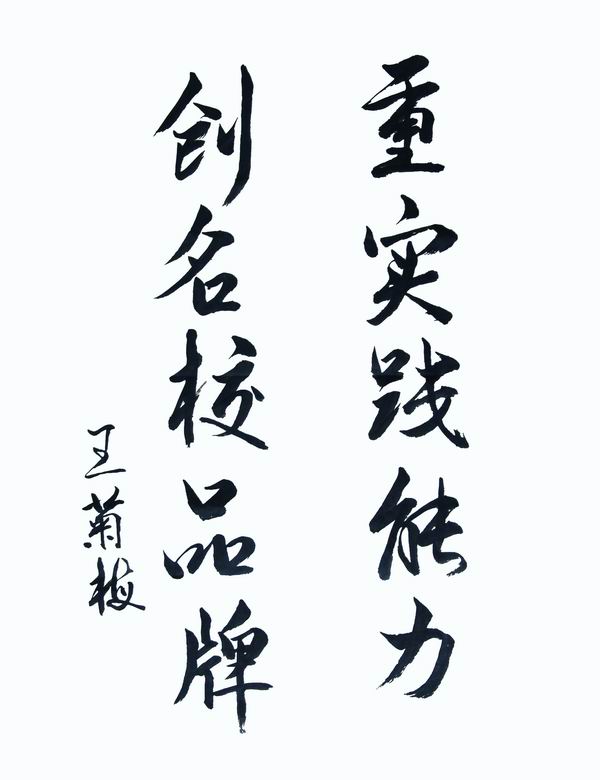 重实践能力
创名校品牌
王菊梅